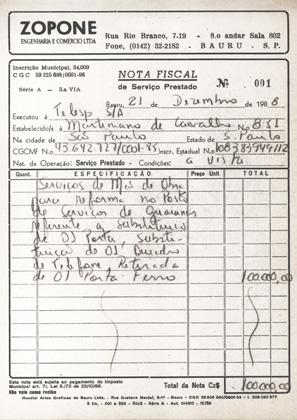 ZOPONE
ENGENHARIA E COMÉRCIO LTDA
Rua Rio Branco, 7-19 - 8.o andar Sala 802
Fone, (0142) 32-2182 - BAURU - S. P.
Inscrição Municipal, 34,009
CGC 59 225 698|0001-96
Série A - 1.a VIA
NOTA FISCAL
de Serviço Prestado
Nº 001
Bauru, 21 de Dezembro de 1988
Executou à Telesp S/A
Estabelecido/s à Martiniano de Carvalho Nº 851
Na cidade de São Paulo Estado de S. Paulo
CGCMF N.o 43.642.727/0001-85 Inscr. Estadual N.o 108383949112
Nat. da Operação: Serviço Prestado - Condições: a vista
Quant. ESPECIFICAÇÃO Preço Unit. TOTAL
Serviços de Mão de Obra
para reforma no Posto
de Serviços de Guaianas
referente a substituição
de 01 Porta, Substi-
tuição de 01 Quadro
de Telefone, Retirada
de 01 Porta Ferro 100.000,00
Esta nota está sujeita ao pagamento do Imposto
Municipal art. 71, Lei 5.172 de 25/10/66.
Não vale como recibo
Total da Nota Cz$ 100.000,00